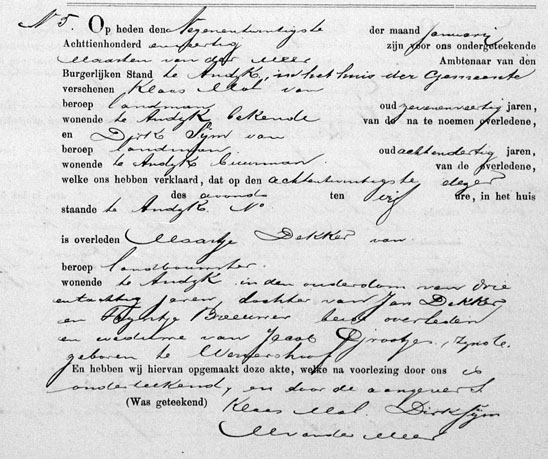 N 5. Op heden den Negenentwintigste der maand January
Achttienhonderd zijn voor ons ondergeteekende
Maarten van der Meer Ambtenaar van den
Burgerlijken Stand te Andijk, in het huis der Gemeente
verschenen Klaas Mol van
beroep landman oud zevenenveertig jaren,
wonende te Andijk bekende van de na te noemen overledene,
en Dirk Sijm van
beroep landman oud achtendertig jaren,
wonende te Andijk Buurman van de overledene,
welke ons hebben verklaard, dat op den achtentwintigste dezer
des avonds ten vijf ure, in het huis
staande te Andijk No
is overleden Maartje Dekker van
beroep landbouwster
wonende te Andijk in den ouderdom van drie
entachtig jaren, dochter van Jan Dekker
en Trijntje beide overleden
en weduwe van Grootjes,
geboren te Wervershoof
En hebben wij hiervan opgemaakt deze akte, welke na voorlezing door ons is
onderteekend, en door de aangevers
(Was geteekend) Klaas Mol. Dirk Sijm
M van der Meer